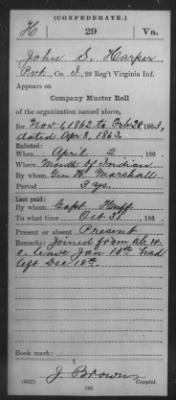 (CONFEDERATE.)
H 29 Va.
John S. Harper
Pvt., Co. I, 29 Reg't Virginia Inf.
Appears on
Company Muster Roll
of the organization named above,
for Nov 1, 1862 to Feb 28, 1863,
dated Apr 8, 1863
Enlisted:
When April 2, 186
Where Mouth of Indian
By whom Gen H. Marshall
Period 3 ys.
Last paid:
By whom Capt Huff
To what time Oct 31, 186
Present or absent Present
Remarks: Joined from ab. w.
o. leave Jan 10th had
left Dec 18th.
Book mark:
J. Brown
(642) Copyist.